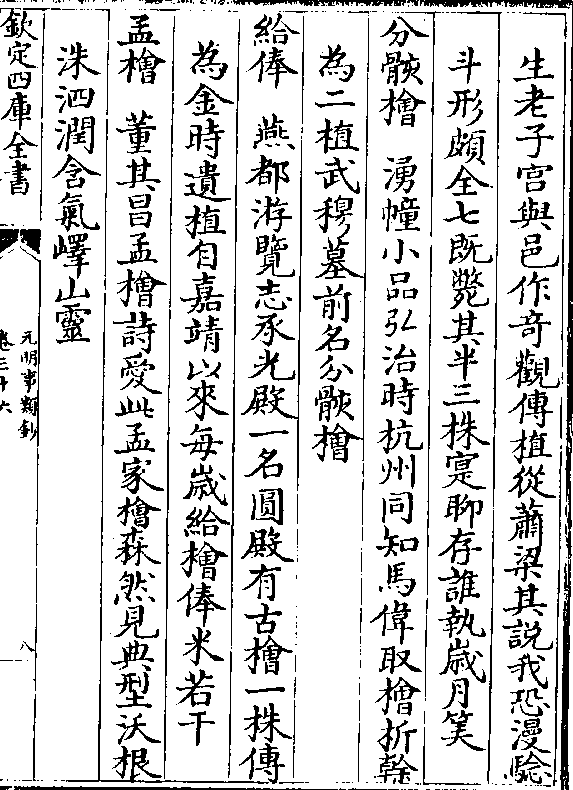 生老子宫與邑作奇觀傳植從蕭梁其説我恐漫騐
斗形頗全七既斃其半三株寔聊存誰執嵗月筭
分骸檜　湧幢小品弘治時杭州同知馬偉取檜折榦
為二植武穆墓前名分骸檜
給俸　燕都游覽志承光殿一名圓殿有古檜一株傳
為金時遺植自嘉靖以來每嵗給檜俸米若干
孟檜　董其昌孟檜詩愛此孟家檜森然見典型沃根
洙泗潤含氣嶧山靈
欽定四庫全書
元明事類鈔
卷三十六
八